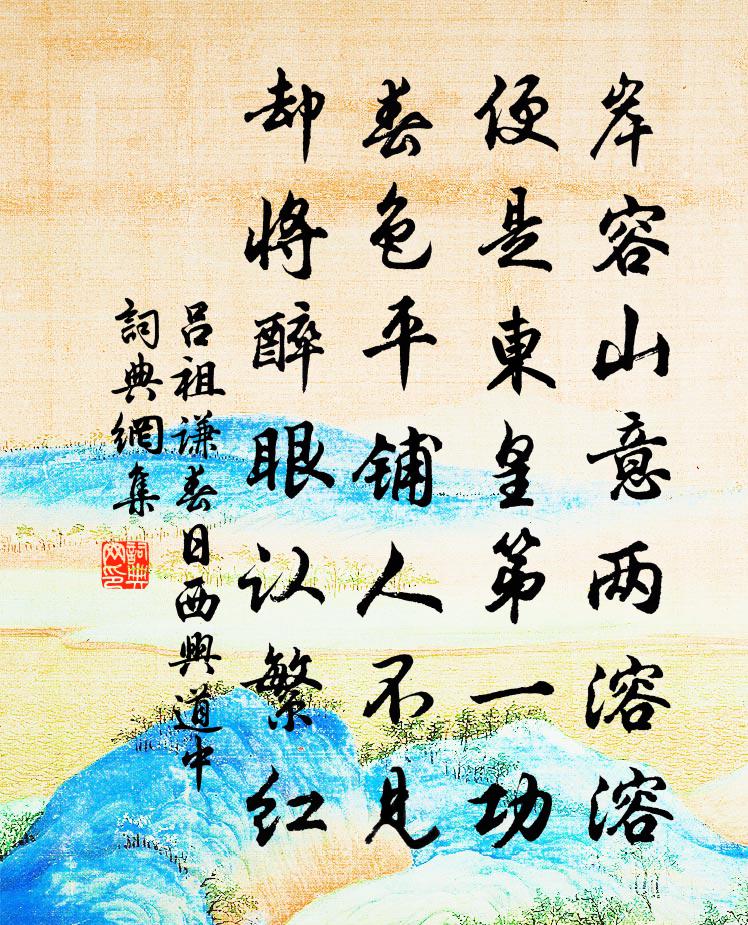 岸容山意两溶溶
便是東皇第一功
春色平铺人不見
却将醉眼认繁红
吕祖谦春日西興道中
詞典網集
詞典网印